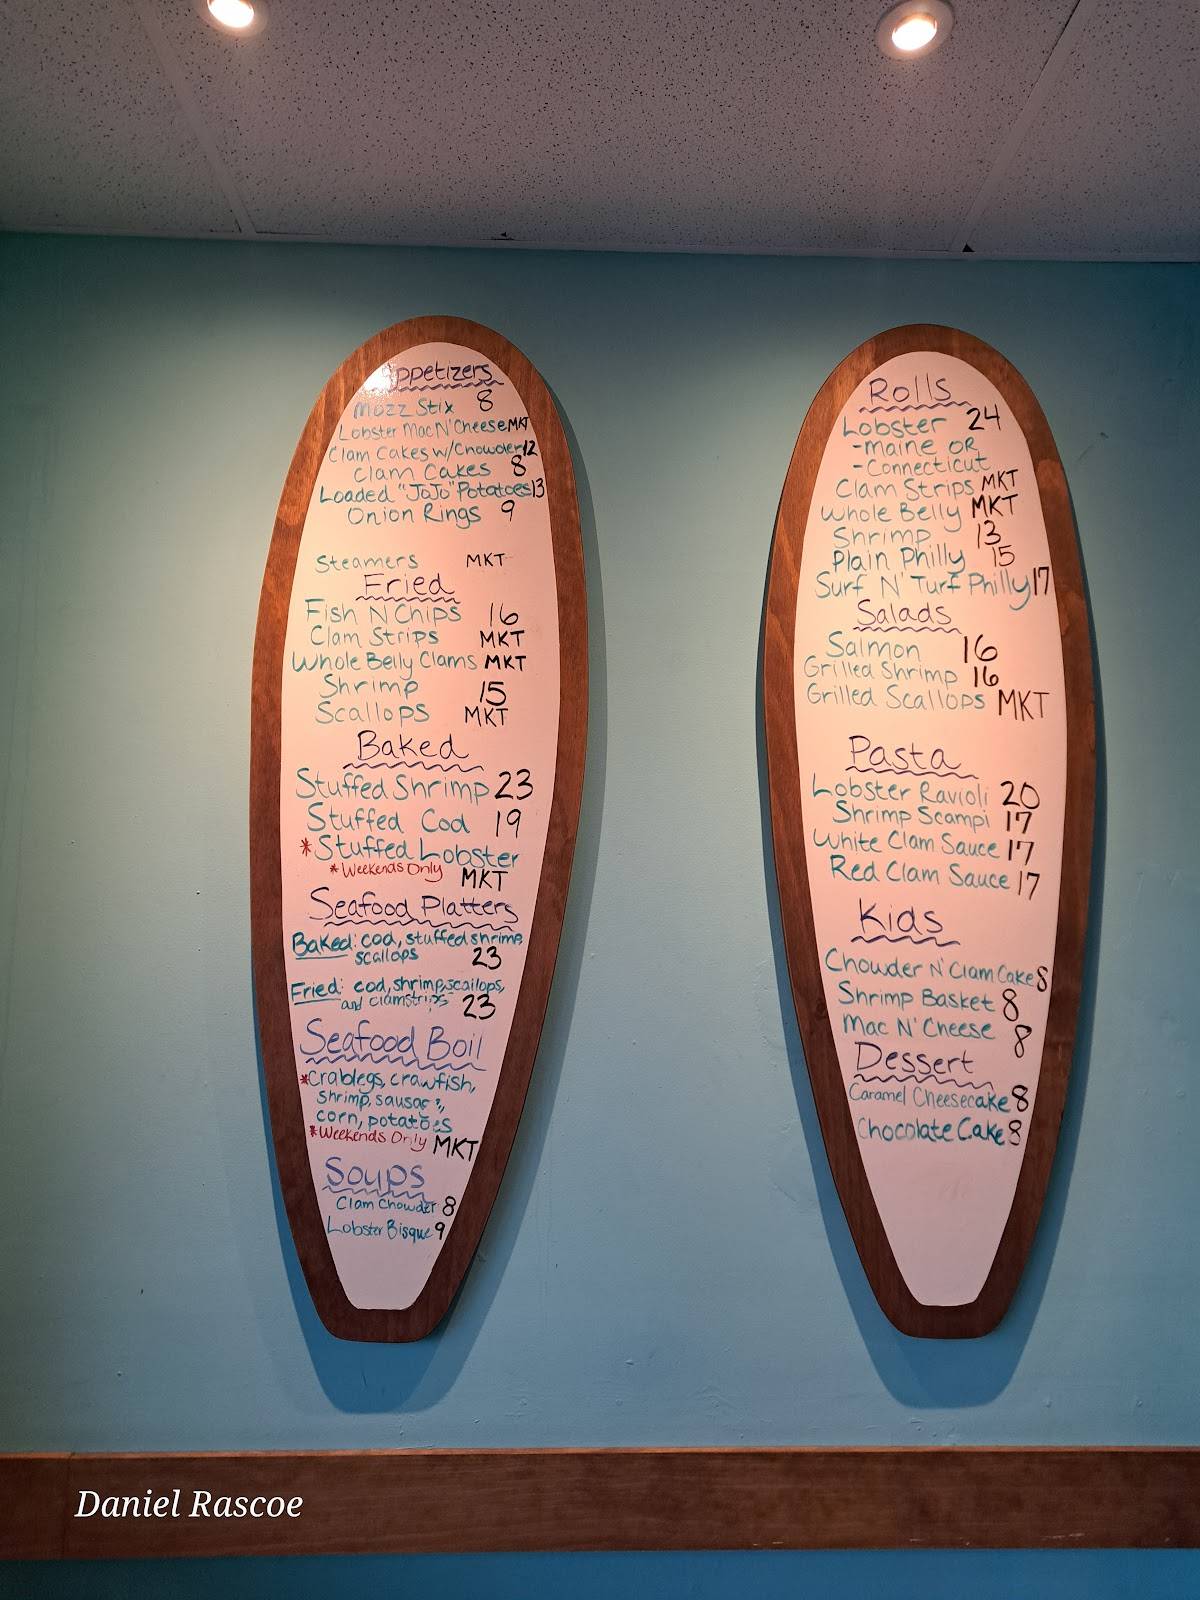 Appetizers
Mozz Stix 8
Lobster Mac N' Cheese MKT
Clam Cakes w/Chowder 12
Clam Cakes 8
Loaded "JoJo" Potatoes 13
Onion Rings 9
Steamers MKT
Fried
Fish N Chips 16
Clam Strips MKT
Whole Belly Clams MKT
Shrimp 15
Scallops MKT
Baked
Stuffed Shrimp 23
Stuffed Cod 19
*Stuffed Lobster
*Weekends Only MKT
Seafood Platters
Baked: cod, stuffed shrimp,
scallops 23
Fried: cod, shrimp, scallops,
and clamstrips 23
Seafood Boil
*Crablegs, crawfish,
shrimp, sausage,
corn, potatoes
*Weekends Only MKT
Soups
Clam Chowder 8
Lobster Bisque 9
Rolls
Lobster 24
-Maine OR
-Connecticut
Clam Strips MKT
Whole Belly MKT
Shrimp 13
Plain Philly 15
Surf N' Turf Philly 17
Salads
Salmon 16
Grilled Shrimp 16
Grilled Scallops MKT
Pasta
Lobster Ravioli 20
Shrimp Scampi 17
White Clam Sauce 17
Red Clam Sauce 17
Kids
Chowder N' Clam Cake 8
Shrimp Basket 8
Mac N' Cheese 8
Dessert
Caramel Cheesecake 8
Chocolate Cake 8
Daniel Rascoe